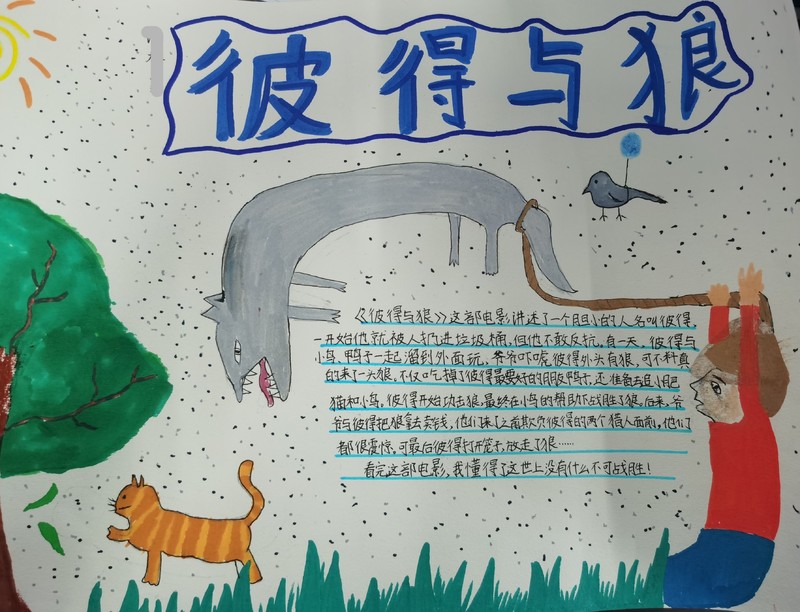 彼得与狼
《彼得与狼》这部电影讲述了一个胆小的人名叫彼得,
一开始他就被人扔进垃圾桶,但他不敢反抗,有一天,彼得与
小鸟、鸭子一起溜到外面玩,爷爷吓唬彼得外头有狼,可不料真
的来了一头狼,不仅吃掉了彼得最要好的朋友鸭子,还准备去逗小肥
猫和小鸟,彼得开始功击狼,最终在小鸟的帮助下战胜了狼,后来,爷
爷与彼得把狼拿去卖钱,他们来了之前欺负彼得的两个猎人面前,他们
都很震惊,可最后彼得打开笼子,放走了狼……
看完这部电影,我懂得了这世上没有什么不可战胜!